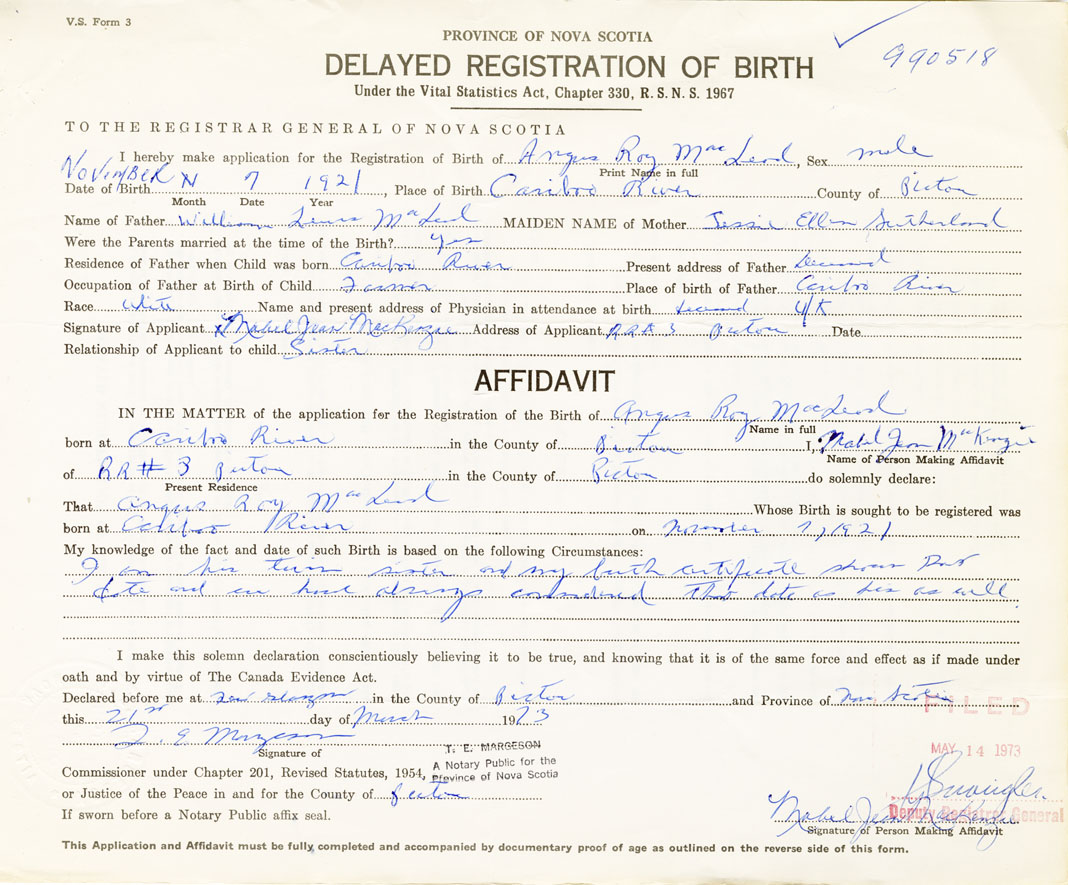 V.S. Form 3
PROVINCE OF NOVA SCOTIA
990518
DELAYED REGISTRATION OF BIRTH
Under the Vital Statistics Act, Chapter 330, R. S. N. S. 1967
TO THE REGISTRAR GENERAL OF NOVA SCOTIA
I hereby make application for the Registration of Birth of Angus Roy MacLeod, Sex male
Print Name in full
NOVEMBER
Date of Birth N 7 1921, Place of Birth Cariboo River County of Pictou
Month Date Year
Name of Father William Lewis MacLeod MAIDEN NAME of Mother Jessie Ellen Sutherland
Were the Parents married at the time of the Birth? Yes
Residence of Father when Child was born Cariboo River Present address of Father Deceased
Occupation of Father at Birth of Child Farmer Place of birth of Father Cariboo River
Race White Name and present address of Physician in attendance at birth U/K
Signature of Applicant X Mabel Jean MacKenzie Address of Applicant RR# 3 Pictou Date
Relationship of Applicant to child Sister
AFFIDAVIT
IN THE MATTER of the application for the Registration of the Birth of Angus Roy MacLeod
Name in full
born at Cariboo River in the County of Pictou I, Mabel Jean MacKenzie
Name of Person Making Affidavit
of RR# 3 Pictou in the County of Pictou do solemnly declare:
Present Residence
That Angus Roy MacLeod Whose Birth is sought to be registered was
born at Cariboo River on November 7, 1921
My knowledge of the fact and date of such Birth is based on the following Circumstances:
I am his twin sister and my birth certificate shows that
date and we have always considered that date as his as well.
I make this solemn declaration conscientiously believing it to be true, and knowing that it is of the same force and effect as if made under
oath and by virtue of The Canada Evidence Act.
Declared before me at New Glasgow in the County of Pictou and Province of Nova Scotia
FILED
this 21st day of March 1973
T. E. Margeson
MAY 14 1973
Signature of
T. E. MARGESON
A Notary Public for the
Province of Nova Scotia
Commissioner under Chapter 201, Revised Statutes, 1954,
or Justice of the Peace in and for the County of Pictou
Deputy Registrar General
Mabel Jean MacKenzie
Signature of Person Making Affidavit
If sworn before a Notary Public affix seal.
This Application and Affidavit must be fully completed and accompanied by documentary proof of age as outlined on the reverse side of this form.